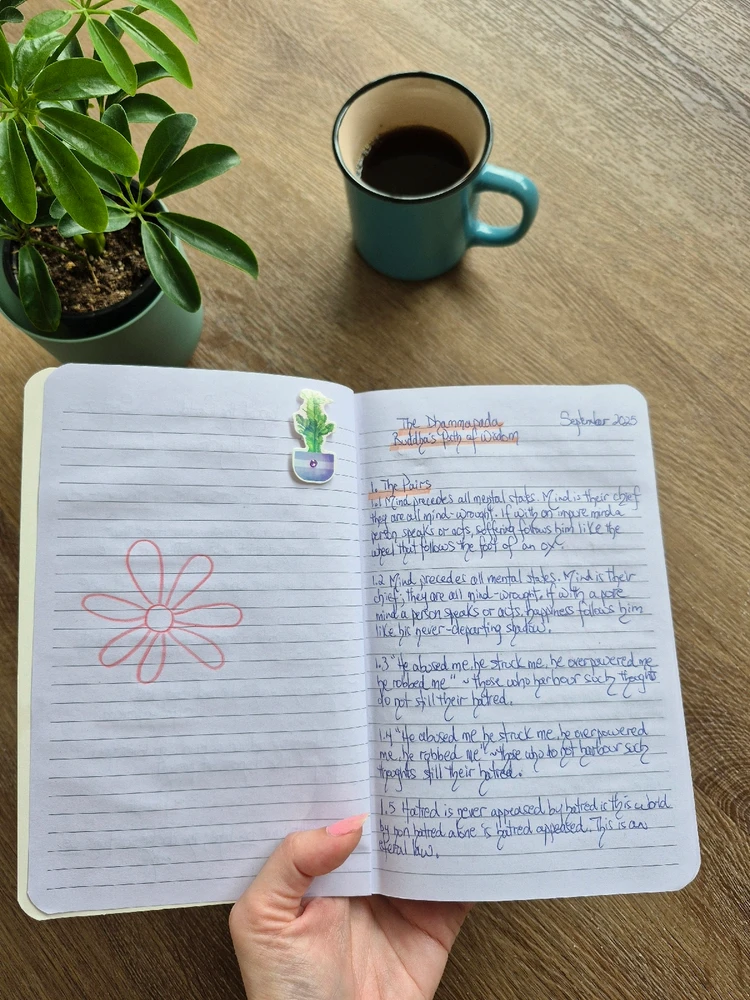 The Dhammapada
Buddha's Path of Wisdom
September 2025
1. The Pairs
1.1 Mind precedes all mental states. Mind is their chief
they are all mind-wrought. If with an impure mind a
person speaks or acts, suffering follows him like the
wheel that follows the foot of an ox.
1.2 Mind precedes all mental states. Mind is their
chief; they are all mind-wrought. If with a pure
mind a person speaks or acts, happiness follows him
like his never-departing shadow.
1.3 "He abused me, he struck me, he overpowered me,
he robbed me" ~ those who harbour such thought
do not still their hatred.
1.4 "He abused me, he struck me, he overpowered
me, he robbed me" ~ those who do not harbour such
thoughts still their hatred.
1.5 Hatred is never appeased by hatred in this world
by non hatred alone is hatred appeased. This is an
eternal law.